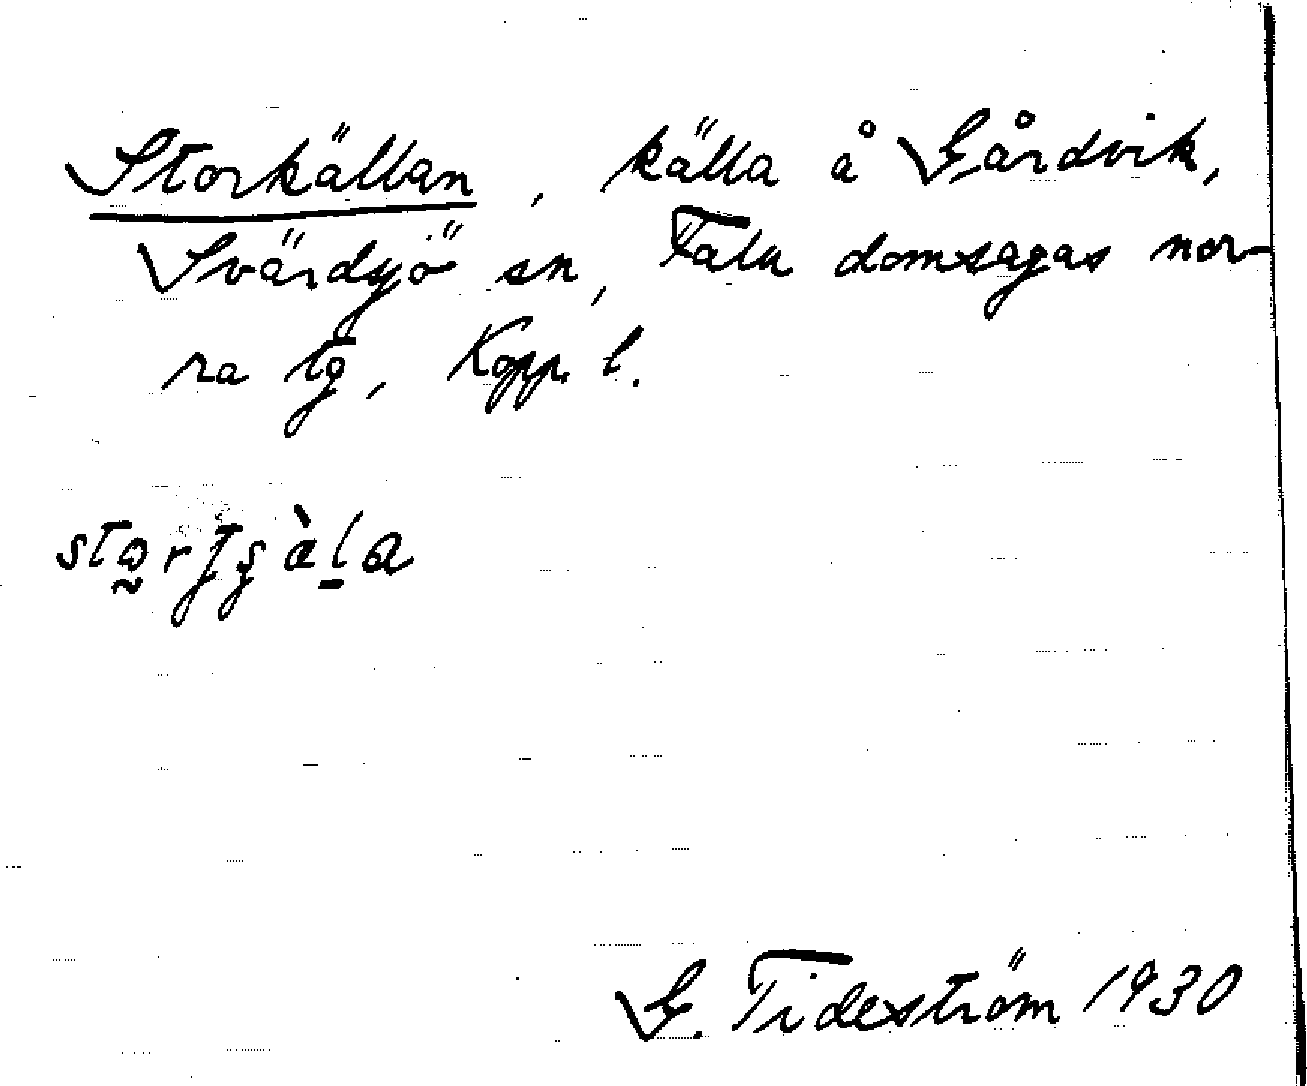 Storkällan, källa å Gårdvik,
Svärdsjö sn, Falu domsagas nor-
ra tg, Kopp. l.
G. Tideström 1930